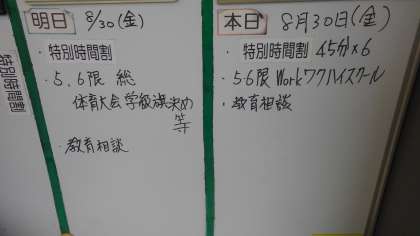 明日 8/30(金)
・特別時間割
・5,6限 総
体育大会学級旗決め
等
・教育相談
本日 8月30日(金)
・特別時間割 45分×6
・5 6限 Workワクハイスクール
・教育相談
特別時間割